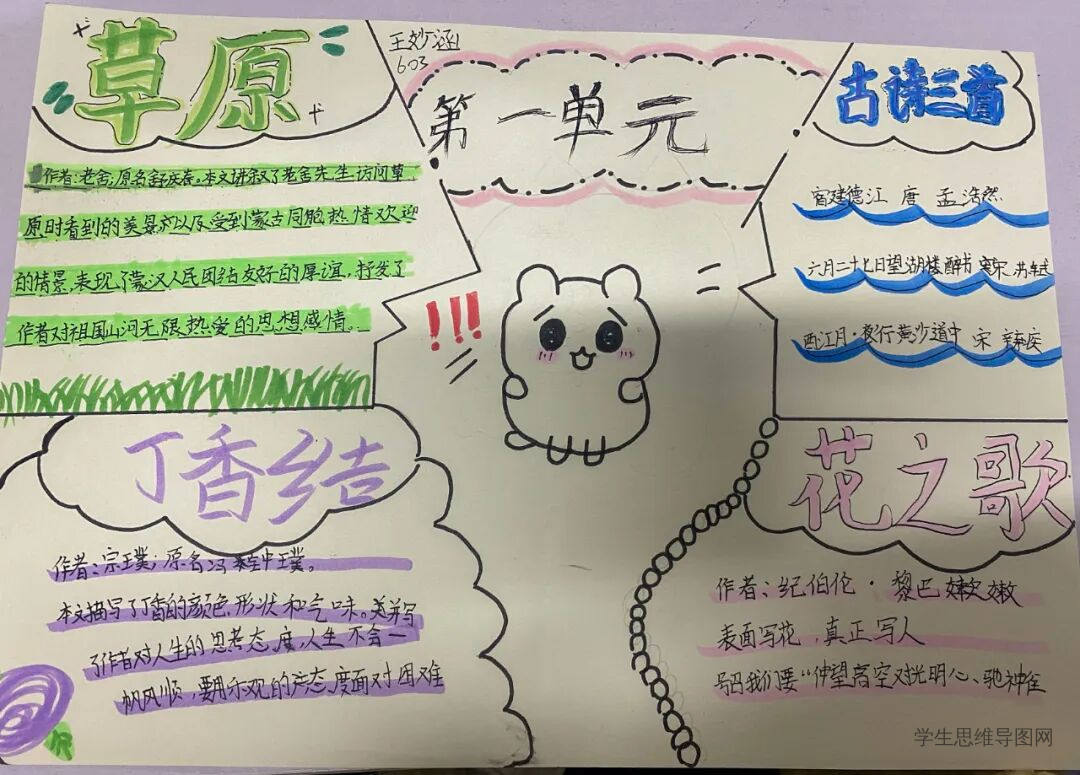 王妙涵
603
第一单元
草原
作者:老舍,原名舒庆春。本文讲叙了老舍先生访问草
原时看到的美景以及受到蒙古同胞热情欢迎
的情景,表现了蒙汉人民团结友好的厚谊,抒发了
作者对祖国山河无限热爱的思想感情。
古诗三首
宿建德江 唐 孟浩然
六月二十七日望湖楼醉书 宋
西江月·夜行黄沙道中 宋 辛弃疾
!!!
丁香结
作者:宗璞,原名冯钟璞。
本文描写了丁香的颜色,形状和气味。美并写
了作者对人生的思考态度,人生不会一
帆风顺,要用乐观的态度面对困难
花之歌
作者:纪伯伦·黎巴嫩
表面写花,真正写人
号召我们要"仰望高空对光明心、驰神往
学生思维导图网